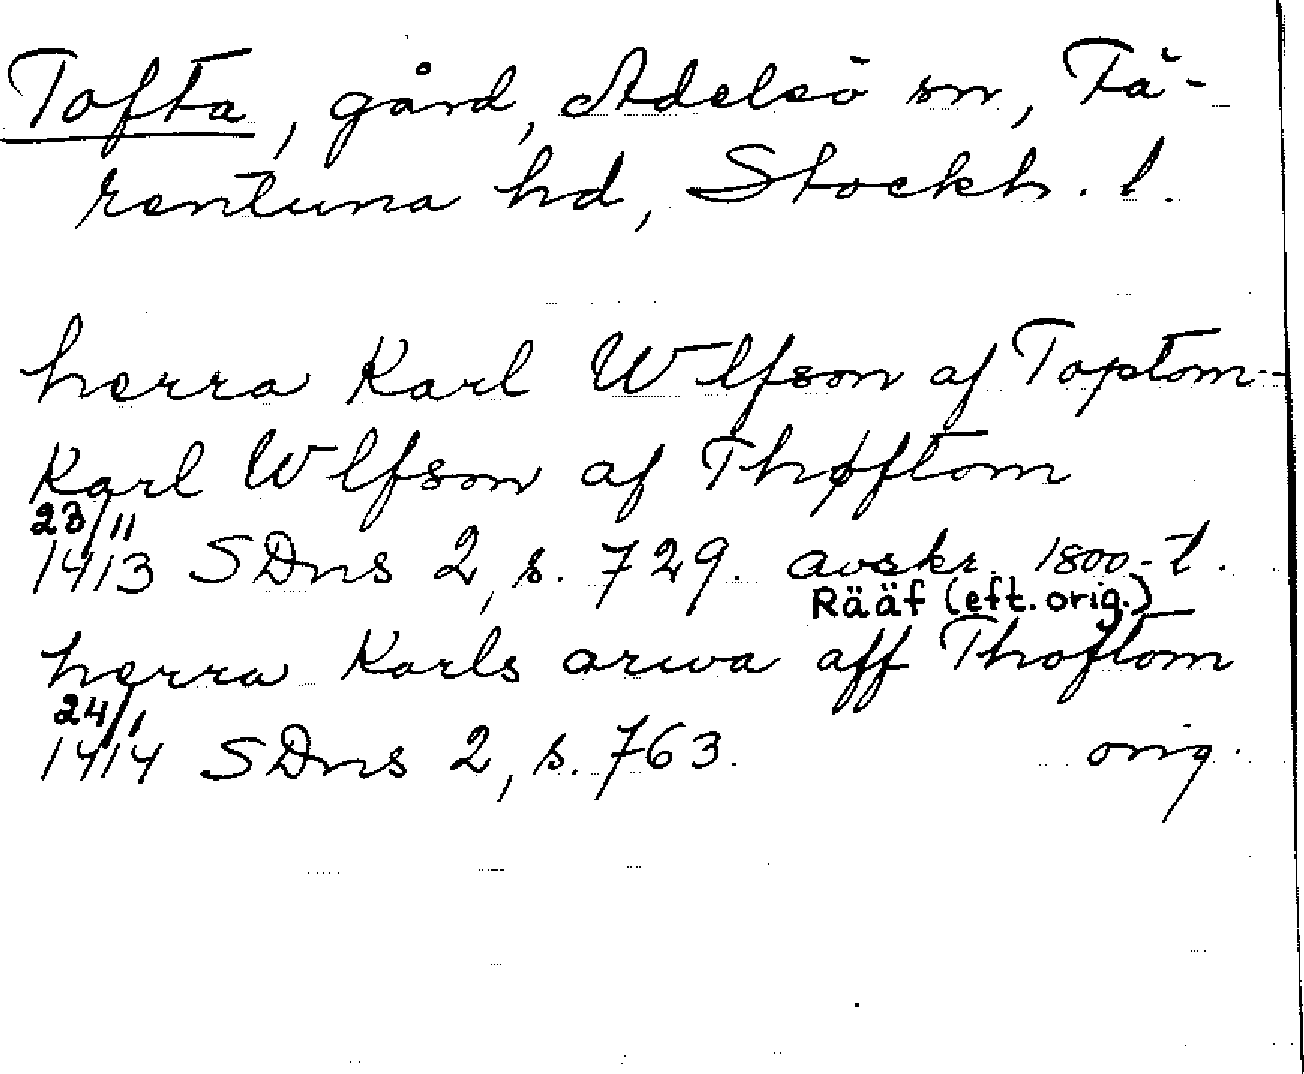 Tofta, gård, Adelsö sn, Fä-
rentuna hd, Stockh. l.
herra Karl Wlfson af Toptom-
Karl Wlfson af Thøftom
23/11
1413 SDns 2, s. 729. avskr. 1800-t.
Rääf (eft. orig.)
herra Karls arwa aff Thoftom
24/1
1414 SDns 2, s. 763. orig.